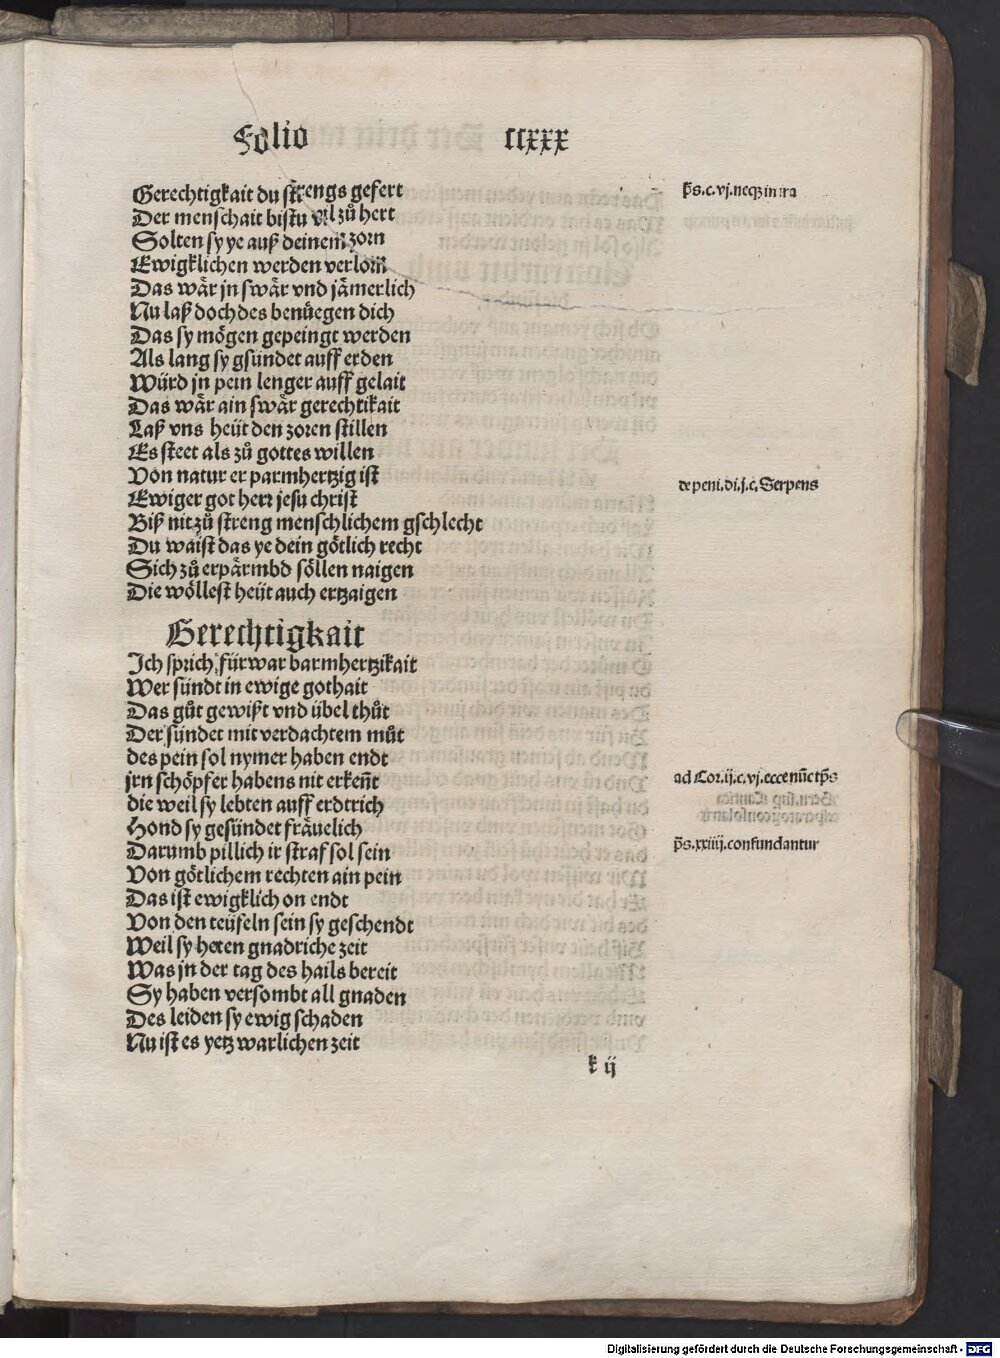 Folio ccxxx
Gerechtigkait du strengs gefert
ps.c.vj.neqz in ira
Der menschait bistu vil zů hert
Solten sy ye auß deinem zorn
Ewigklichen werden verlorn
Das wår jn swår vnd jåmerlich
Nu laß doch des benüegen dich
Das sy mögen gepeingt werden
Als lang sy gsündet auff erden
Würd jn pein lenger auff gelait
Das wår ain swår gerechtikait
Laß vns heüt den zoren stillen
Es steet als zů gottes willen
Von natur er parmhertzig ist
de peni.di.j.c. Serpens
Ewiger got herr jesu christ
Biß nit zů streng menschlichem gschlecht
Du waist das ye dein götlich recht
Sich zů erpårmbd söllen naigen
Die wöllest heüt auch ertzaigen
Gerechtigkait
Ich sprich fürwar barmhertzikait
Wer sündt in ewige gothait
Das gůt gewißt vnd übel thůt
Der sündet mit verdachtem můt
des pein sol nymer haben endt
jrn schöpfer habens nit erkeñt
ad Cor.ij.c.vj.ecce nũc tp̃s
die weil sy lebten auff erdtrich
Hond sy gesündet fråuelich
Darumb pillich ir straf sol sein
p̃s.xxiiij.confundantur
Von götlichem rechten ain pein
Das ist ewigklich on endt
Von den teüfeln sein sy geschendt
Weil sy heten gnadriche zeit
Was jn der tag des hails bereit
Sy haben versombt all gnaden
Des leiden sy ewig schaden
Nu ist es yetz warlichen zeit
k ij
Digitalisierung gefördert durch die Deutsche Forschungsgemeinschaft - DFG